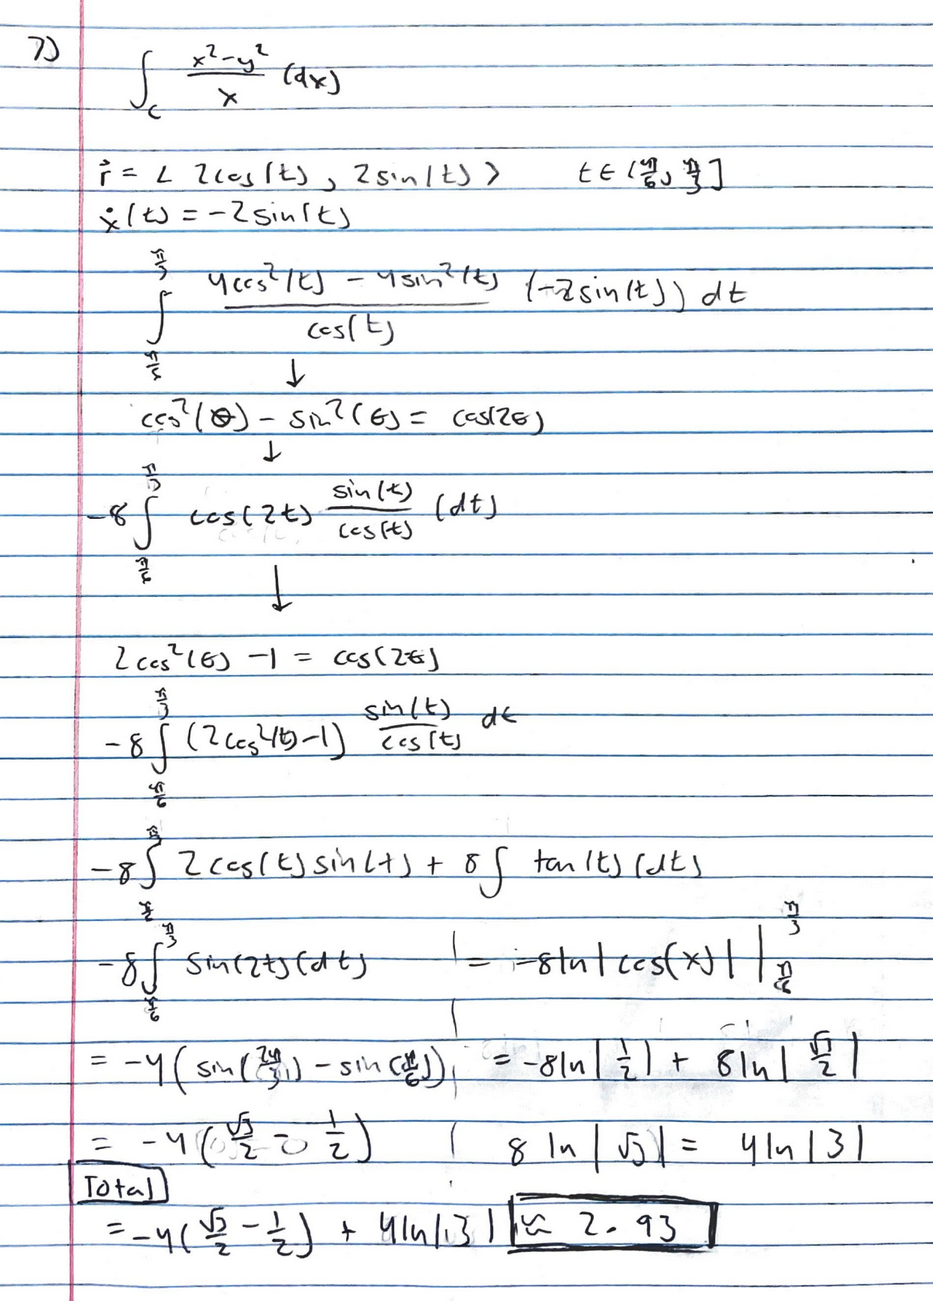 7) ∫_C (x²-y²)/x (dx)
r⃗ = < 2cos(t), 2sin(t) > t ∈ (π/6, π/3]
ẋ(t) = -2sin(t)
∫_{π/6}^{π/3} (4cos²(t) - 4sin²(t))/cos(t) (-2sin(t)) dt
↓
cos²(θ) - sin²(θ) = cos(2θ)
↓
-8 ∫_{π/6}^{π/3} cos(2t) sin(t)/cos(t) (dt)
↓
2cos²(θ) - 1 = cos(2θ)
-8 ∫_{π/6}^{π/3} (2cos²(t)-1) sin(t)/cos(t) dt
-8 ∫_{π/6}^{π/3} 2cos(t)sin(t) + 8 ∫ tan(t)(dt)
-8 ∫_{π/6}^{π/3} sin(2t)(dt) | = -8ln|cos(x)| |_{π/6}^{π/3}
= -4(sin(2π/3) - sin(π/6)) | = -8ln|1/2| + 8ln|√3/2|
= -4(√3/2 - 1/2) | 8 ln|√3| = 4ln|3|
Total
= -4(√3/2 - 1/2) + 4ln|3| ≈ 2.93